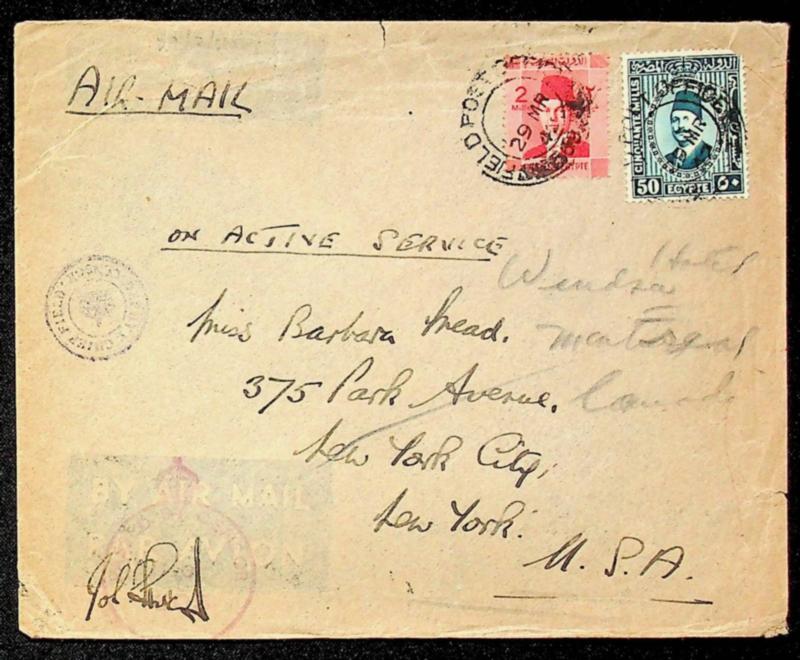 AIR-MAIL
FIELD POST OFFICE
29 MR
2
MILLS
CINQUANTE MILLS
50 EGYPTE ٥٠
ON ACTIVE SERVICE
Miss Barbara Mead.
375 Park Avenue.
New York City,
New York.
U.S.A.
Hotel
Windsor
Montreal
Canada
CHIEF FIELD CENSOR
BY AIR MAIL
PAR AVION